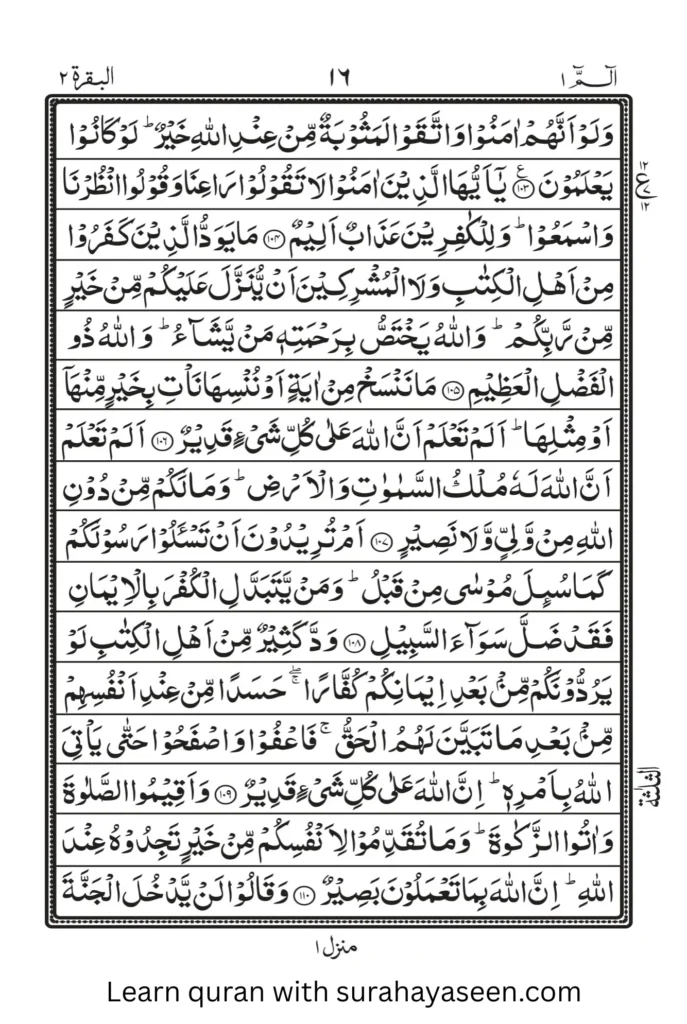 الٓـمّٓ ١ ١٦ البقرة ٢
وَلَوْ اَنَّهُمْ اٰمَنُوْا وَاتَّقَوْا لَمَثُوْبَةٌ مِّنْ عِنْدِ اللّٰهِ خَيْرٌ ؕ لَوْ كَانُوْا
يَعْلَمُوْنَ ﴿١٠٣﴾ ع يٰۤاَيُّهَا الَّذِيْنَ اٰمَنُوْا لَا تَقُوْلُوْا رَاعِنَا وَقُوْلُوا انْظُرْنَا
١٢ ع ٧ ١٢
وَاسْمَعُوْا ؕ وَلِلْكٰفِرِيْنَ عَذَابٌ اَلِيْمٌ ﴿١٠٤﴾ مَا يَوَدُّ الَّذِيْنَ كَفَرُوْا
مِنْ اَهْلِ الْكِتٰبِ وَلَا الْمُشْرِكِيْنَ اَنْ يُّنَزَّلَ عَلَيْكُمْ مِّنْ خَيْرٍ
مِّنْ رَّبِّكُمْ ؕ وَاللّٰهُ يَخْتَصُّ بِرَحْمَتِهٖ مَنْ يَّشَآءُ ؕ وَاللّٰهُ ذُو
الْفَضْلِ الْعَظِيْمِ ﴿١٠٥﴾ مَا نَنْسَخْ مِنْ اٰيَةٍ اَوْ نُنْسِهَا نَاْتِ بِخَيْرٍ مِّنْهَاۤ
اَوْ مِثْلِهَا ؕ اَلَمْ تَعْلَمْ اَنَّ اللّٰهَ عَلٰى كُلِّ شَيْءٍ قَدِيْرٌ ﴿١٠٦﴾ اَلَمْ تَعْلَمْ
اَنَّ اللّٰهَ لَهٗ مُلْكُ السَّمٰوٰتِ وَالْاَرْضِ ؕ وَمَا لَكُمْ مِّنْ دُوْنِ
اللّٰهِ مِنْ وَّلِيٍّ وَّلَا نَصِيْرٍ ﴿١٠٧﴾ اَمْ تُرِيْدُوْنَ اَنْ تَسْـَٔلُوْا رَسُوْلَكُمْ
كَمَا سُىِٕلَ مُوْسٰى مِنْ قَبْلُ ؕ وَمَنْ يَّتَبَدَّلِ الْكُفْرَ بِالْاِيْمَانِ
فَقَدْ ضَلَّ سَوَآءَ السَّبِيْلِ ﴿١٠٨﴾ وَدَّ كَثِيْرٌ مِّنْ اَهْلِ الْكِتٰبِ لَوْ
يَرُدُّوْنَكُمْ مِّنْۢ بَعْدِ اِيْمَانِكُمْ كُفَّارًا ۖۚ حَسَدًا مِّنْ عِنْدِ اَنْفُسِهِمْ
مِّنْۢ بَعْدِ مَا تَبَيَّنَ لَهُمُ الْحَقُّ ۚ فَاعْفُوْا وَاصْفَحُوْا حَتّٰى يَاْتِيَ
اللّٰهُ بِاَمْرِهٖ ؕ اِنَّ اللّٰهَ عَلٰى كُلِّ شَيْءٍ قَدِيْرٌ ﴿١٠٩﴾ وَاَقِيْمُوا الصَّلٰوةَ
الثلثة
وَاٰتُوا الزَّكٰوةَ ؕ وَمَا تُقَدِّمُوْا لِاَنْفُسِكُمْ مِّنْ خَيْرٍ تَجِدُوْهُ عِنْدَ
اللّٰهِ ؕ اِنَّ اللّٰهَ بِمَا تَعْمَلُوْنَ بَصِيْرٌ ﴿١١٠﴾ وَقَالُوْا لَنْ يَّدْخُلَ الْجَنَّةَ
منزل ١
Learn quran with surahayaseen.com